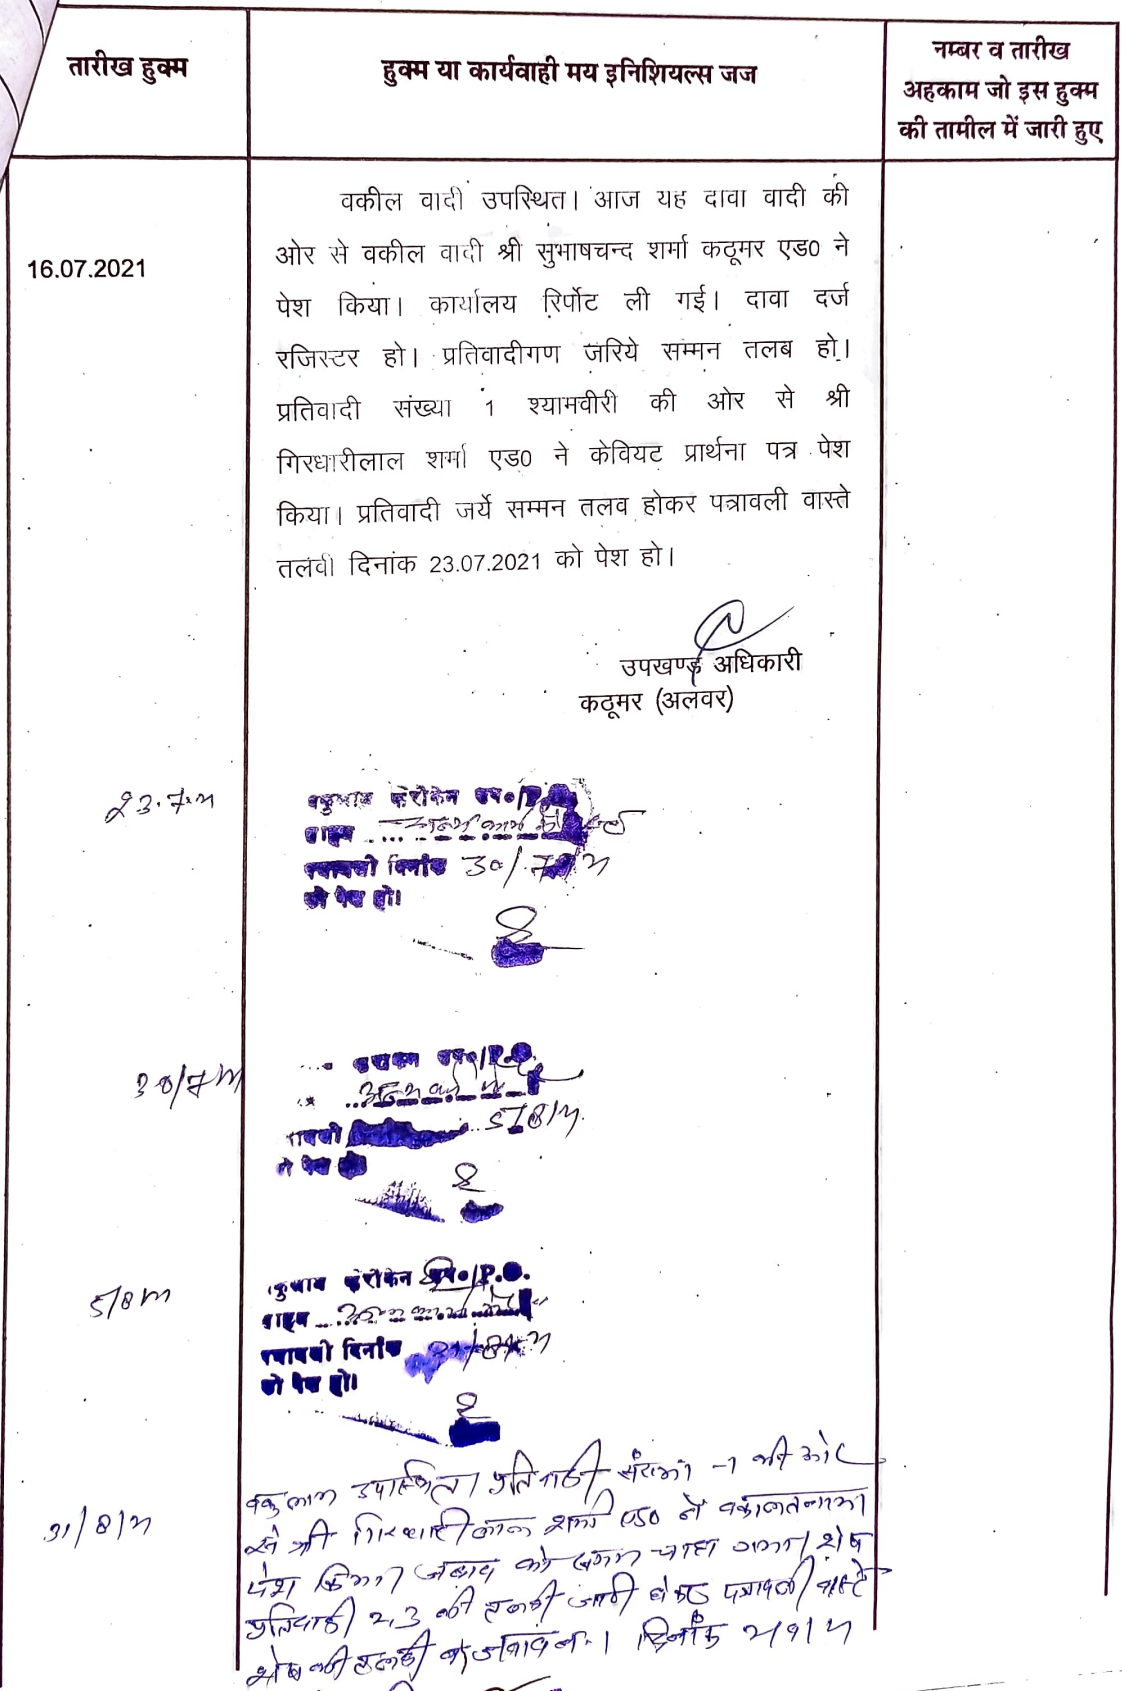 तारीख हुक्म
हुक्म या कार्यवाही मय इनिशियल्स जज
नम्बर व तारीख
अहकाम जो इस हुक्म
की तामील में जारी हुए
16.07.2021
वकील वादी उपस्थित। आज यह दावा वादी की
ओर से वकील वादी श्री सुभाषचन्द शर्मा कठूमर एड0 ने
पेश किया। कार्यालय रिर्पोट ली गई। दावा दर्ज
रजिस्टर हो। प्रतिवादीगण जरिये सम्मन तलब हो।
प्रतिवादी संख्या 1 श्यामवीरी की ओर से श्री
गिरधारीलाल शर्मा एड0 ने केवियट प्रार्थना पत्र पेश
किया। प्रतिवादी जर्ये सम्मन तलव होकर पत्रावली वास्ते
तलवी दिनांक 23.07.2021 को पेश हो।
उपखण्ड अधिकारी
कठूमर (अलवर)
23.7.21
फेरोकेन
साहब
दिनांक 30/7/21
को पेश हो।
30/7/21
P.O.
5/8/21
5/8/21
फेरोकेन P.O.
साहब
दिनांक
को पेश हो।
31/8/21
उपस्थित। प्रतिवादी संख्या -1 की ओर
से श्री गिरधारी लाल शर्मा एड0 ने वकालतनामा
पेश किया। जवाब को समय चाहा गया। शेष
प्रतिवादी 2,3 की तलवी जारी होकर पत्रावली वास्ते
शेष की तलवी व जवाब दिनांक